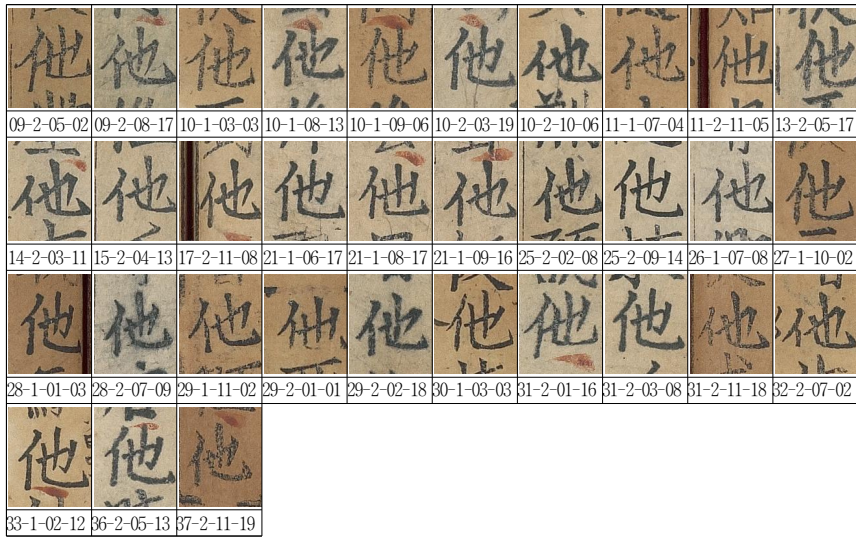 他 他 他 他 他 他 他 他 他 他
09-2-05-02 09-2-08-17 10-1-03-03 10-1-08-13 10-1-09-06 10-2-03-19 10-2-10-06 11-1-07-04 11-2-11-05 13-2-05-17
他 他 他 他 他 他 他 他 他 他
14-2-03-11 15-2-04-13 17-2-11-08 21-1-06-17 21-1-08-17 21-1-09-16 25-2-02-08 25-2-09-14 26-1-07-08 27-1-10-02
他 他 他 他 他 他 他 他 他 他
28-1-01-03 28-2-07-09 29-1-11-02 29-2-01-01 29-2-02-18 30-1-03-03 31-2-01-16 31-2-03-08 31-2-11-18 32-2-07-02
他 他 他
33-1-02-12 36-2-05-13 37-2-11-19